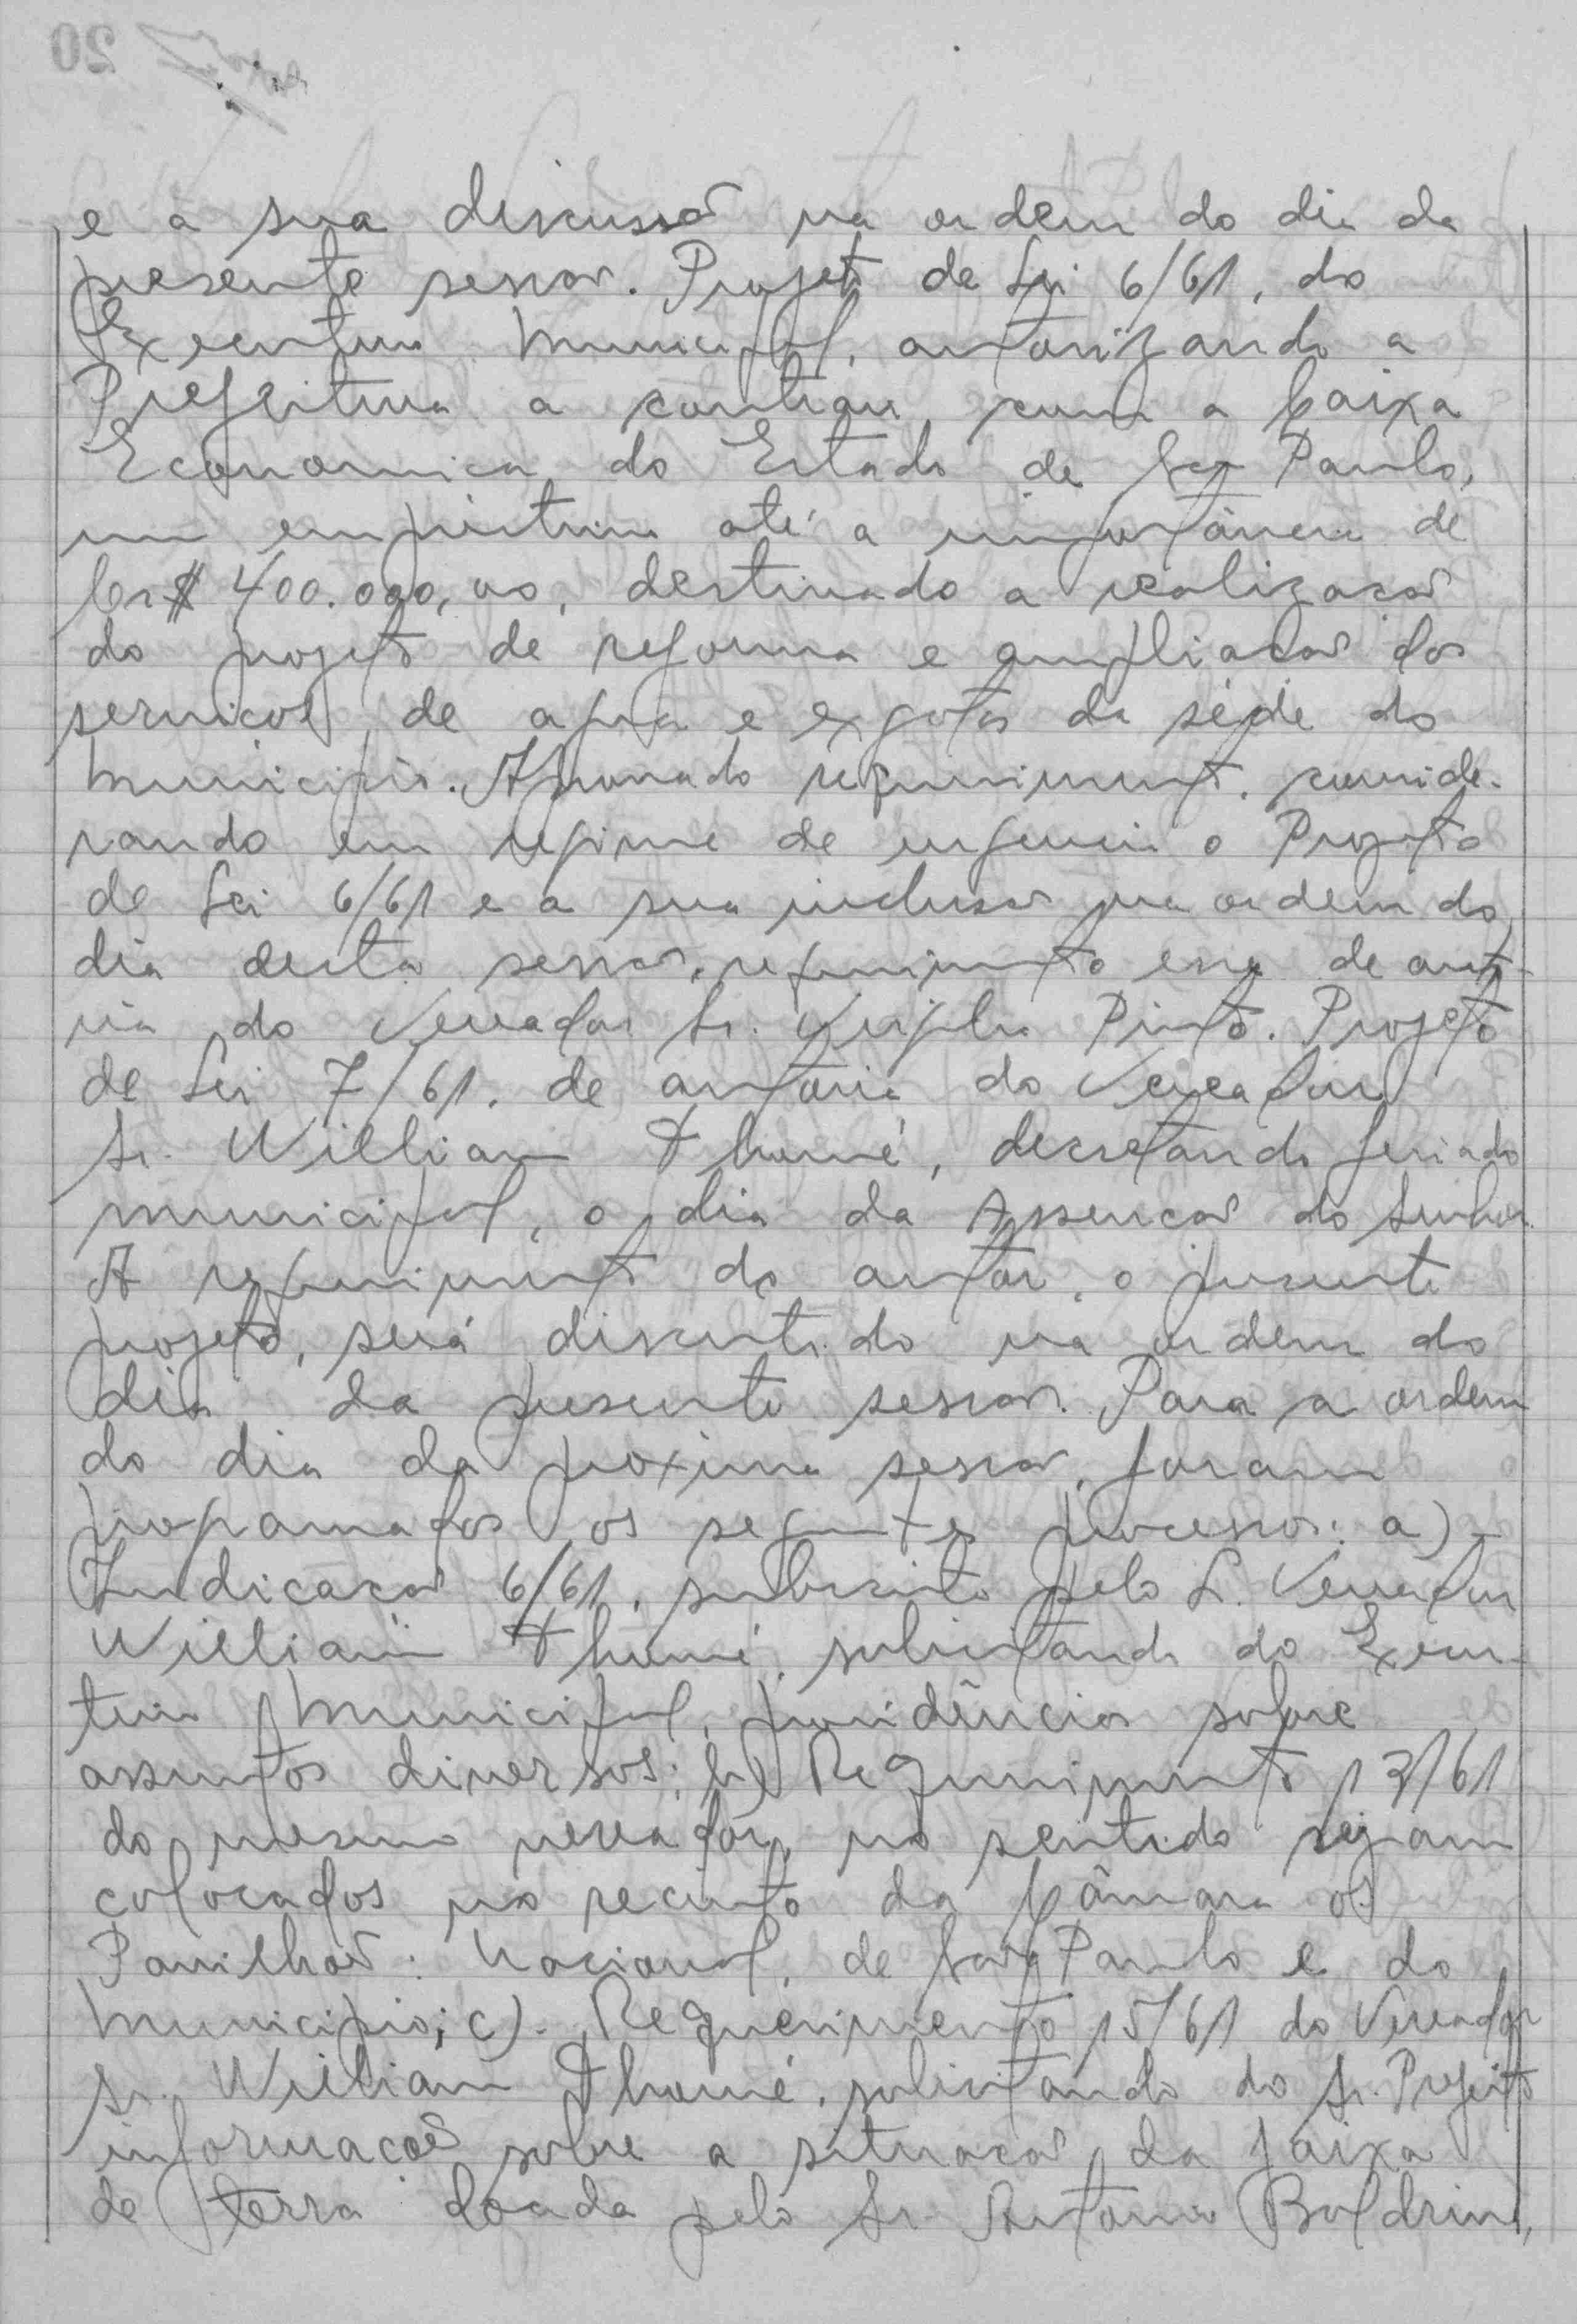 e a sua discussão na ordem do dia da
presente sessão. Projeto de Lei 6/61, do
Executivo Municipal, autorizando a
Prefeitura a contrair, com a Caixa
Economica do Estado de São Paulo,
um emprestimo até a importância de
Cr$ 400.000,00, destinado a realização
do projeto de reforma e ampliação dos
serviços de agua e exgotos da séde do
Municipio. Aprovado requerimento, conside-
rando em regime de urgencia o Projeto
de Lei 6/61 e a sua inclusão na ordem do
dia desta sessão, requerimento esse de auto-
ria do Vereador Sr. Virgilio Pinto. Projeto
de Lei 7/61, de autoria do Vereador
Sr. William Thomé, decretando feriado
municipal, o dia da Assenção do Senhor.
A requerimento do autor, o presente
projeto, será discutido na ordem do
dia da presente sessão. Para a ordem
do dia da proxima sessão, foram
programados os seguintes processos: a)-
Indicação 6/61, subscrito pelo S. Vereador
William Thomé, solicitando do Execu-
tivo Municipal, providências sobre
assuntos diversos; b) Requerimento 13/61
do mesmo vereador, no sentido sejam
colocados no recinto da Câmara os
Pavilhões: Nacional, de São Paulo e do
Municipio; c)- Requerimento 15/61 do Vereador
Sr. William Thomé, solicitando do Sr. Prefeito
informações sobre a situação da faixa
de terra doada pelo Sr. Antonio Boldrini,